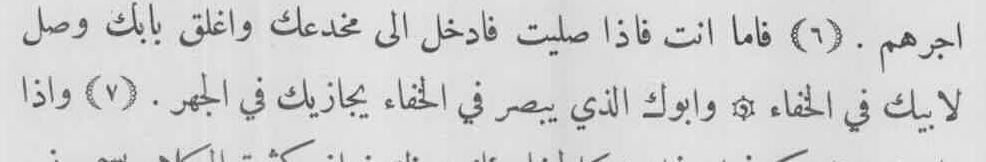 اجرهم . (٦) فاما انت فاذا صليت فادخل الى مخدعك واغلق بابك وصل
لابيك في الخفاء ۞ وابوك الذي يبصر في الخفاء يجازيك في الجهر . (٧) واذا